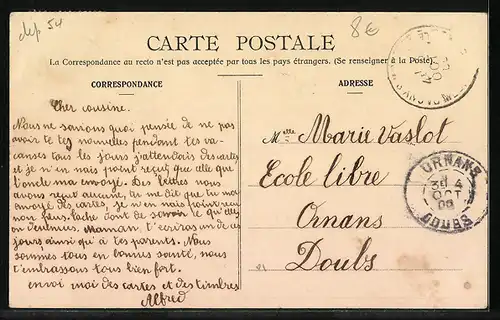 dep 54
8€
CARTE POSTALE
La Correspondance au recto n'est pas acceptée par tous les pays étrangers. (Se renseigner à la Poste).
CORRESPONDANCE
Cher cousine.
Nous ne savions quoi pensée de ne pas
avoir te tes nouvelles pendant tes va-
canses tous les jours j'attendais des cartes
et je n'en nais point reçu que elle que
l'oncle m'a envoyé. Des lettres nous
avons reçut aucune, tu me dit que tu m'a
envoyé des cartes, je n'en nais point reçu
nous fleurs, tache dont de savoir ce qu'elle
on devenues, maman, t'ecriras un de ces
jours ainsi qu'à tes parents. Nous
sommes tous en bonnes santé, nous
t'embrassons tous bien fort.
envoi moi des cartes et des timbres
Alfred
ADRESSE
Melle Marie Vaslot
Ecole libre
Ornans
Doubs
ORNANS
30 4
OCT
08
DOUBS